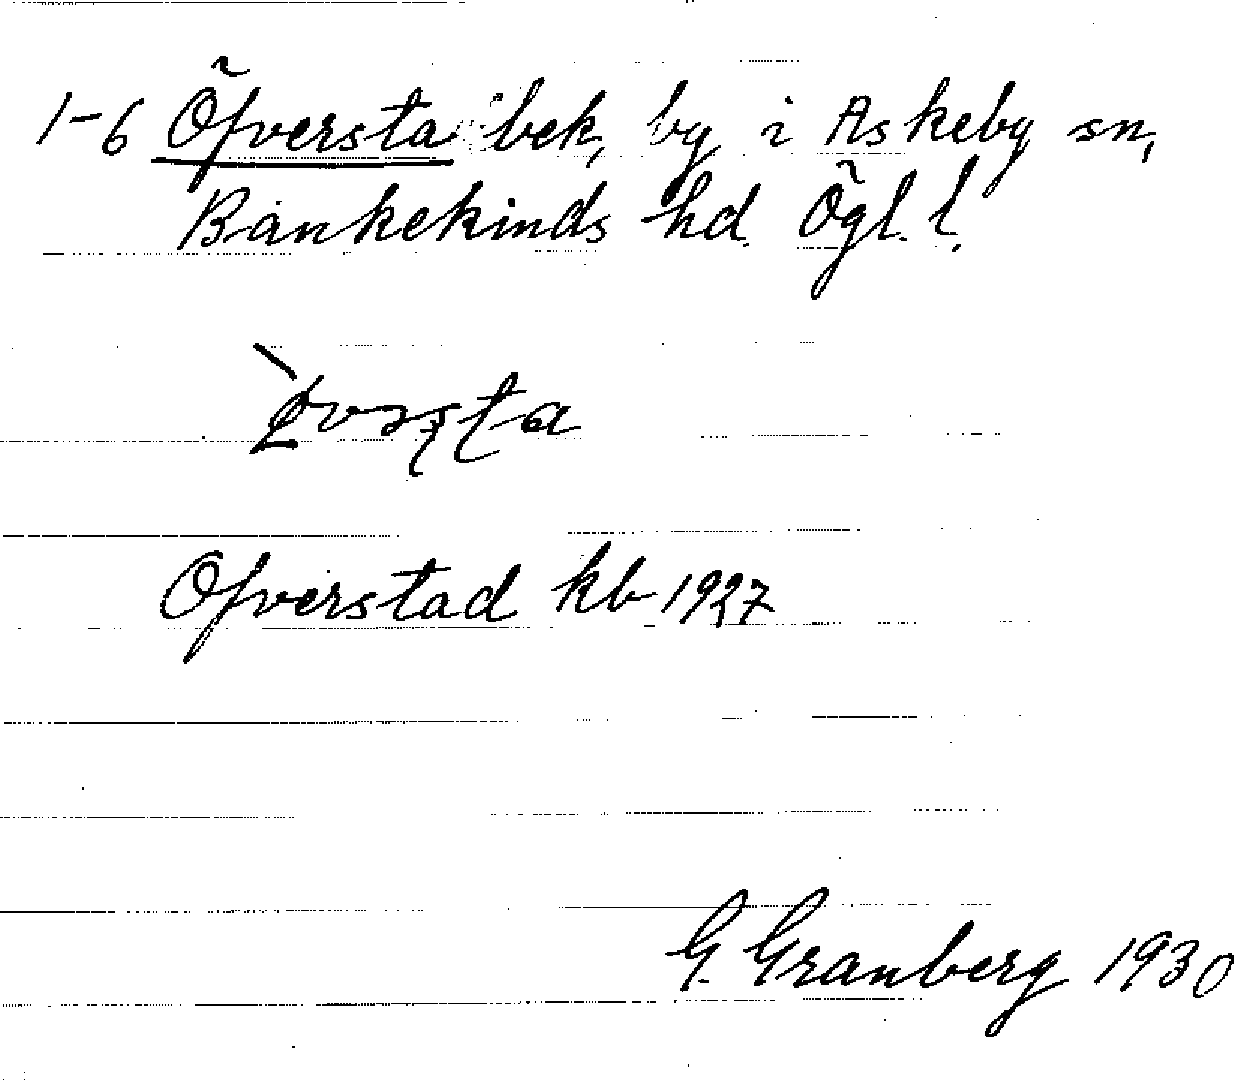 1-6 Öfversta bek, by i Askeby sn,
Bankekinds hd. Ögl. l.
Öfverstad kb 1927
G. Granberg 1930